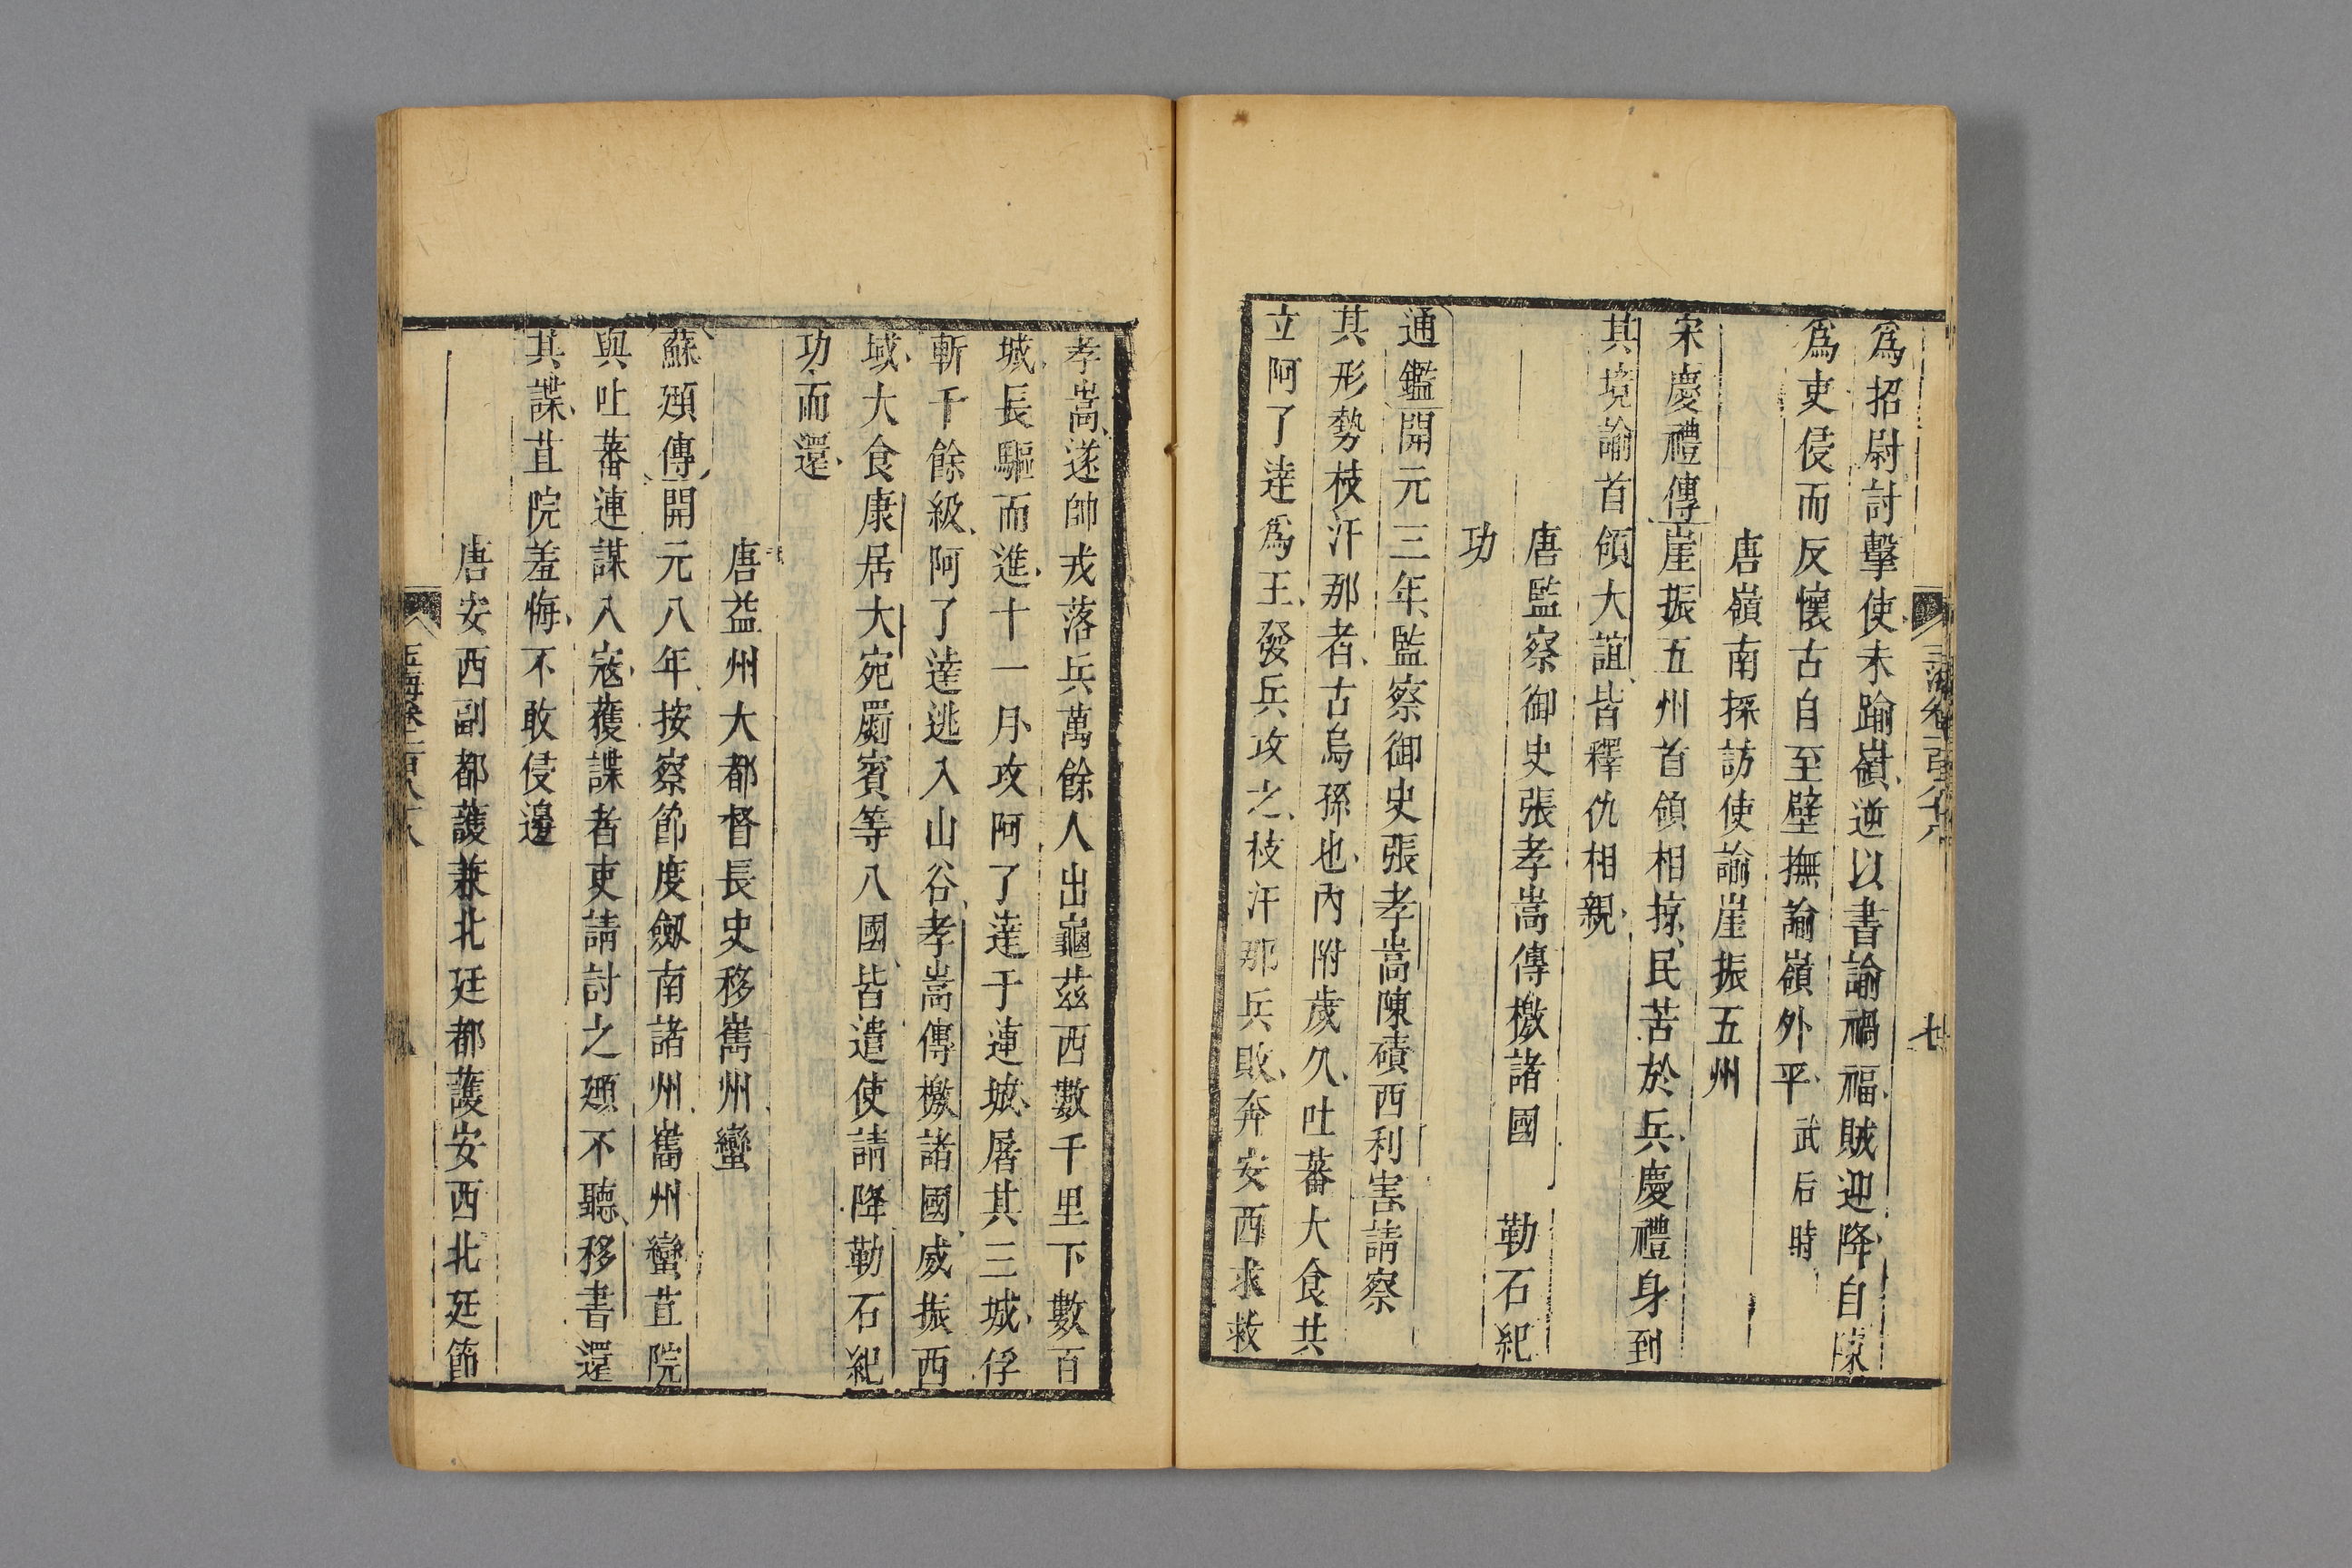 爲招尉討擊使未踰嶺逆以書諭禍福賊迎降自陳
爲吏侵而反懷古自至壁撫諭嶺外平武后時
唐嶺南採訪使諭崖振五州
宋慶禮傳崖振五州首領相掠民苦於兵慶禮身到
其境諭首領大誼皆釋仇相親
唐監察御史張孝嵩傳檄諸國 勒石紀
功
通鑑開元三年監察御史張孝嵩陳磧西利害請察
其形勢枝汗那者古烏孫也內附歲久吐蕃大食共
立阿了達爲王發兵攻之枝汗那兵敗奔安西求救
孝嵩遂帥戎落兵萬餘人出龜茲西數千里下數百
城長驅而進十一月攻阿了達于連城屠其三城俘
斬千餘級阿了達逃入山谷孝嵩傳檄諸國威振西
域大食康居大宛罽賓等八國皆遣使請降勒石紀
功而還
唐益州大都督長史移巂州蠻
蘇頲傳開元八年按察節度劔南諸州巂州蠻苴院
與吐蕃連謀入寇獲諜者吏請討之頲不聽移書還
其諜苴院羞悔不敢侵邊
唐安西副都護兼北廷都護安西北廷節